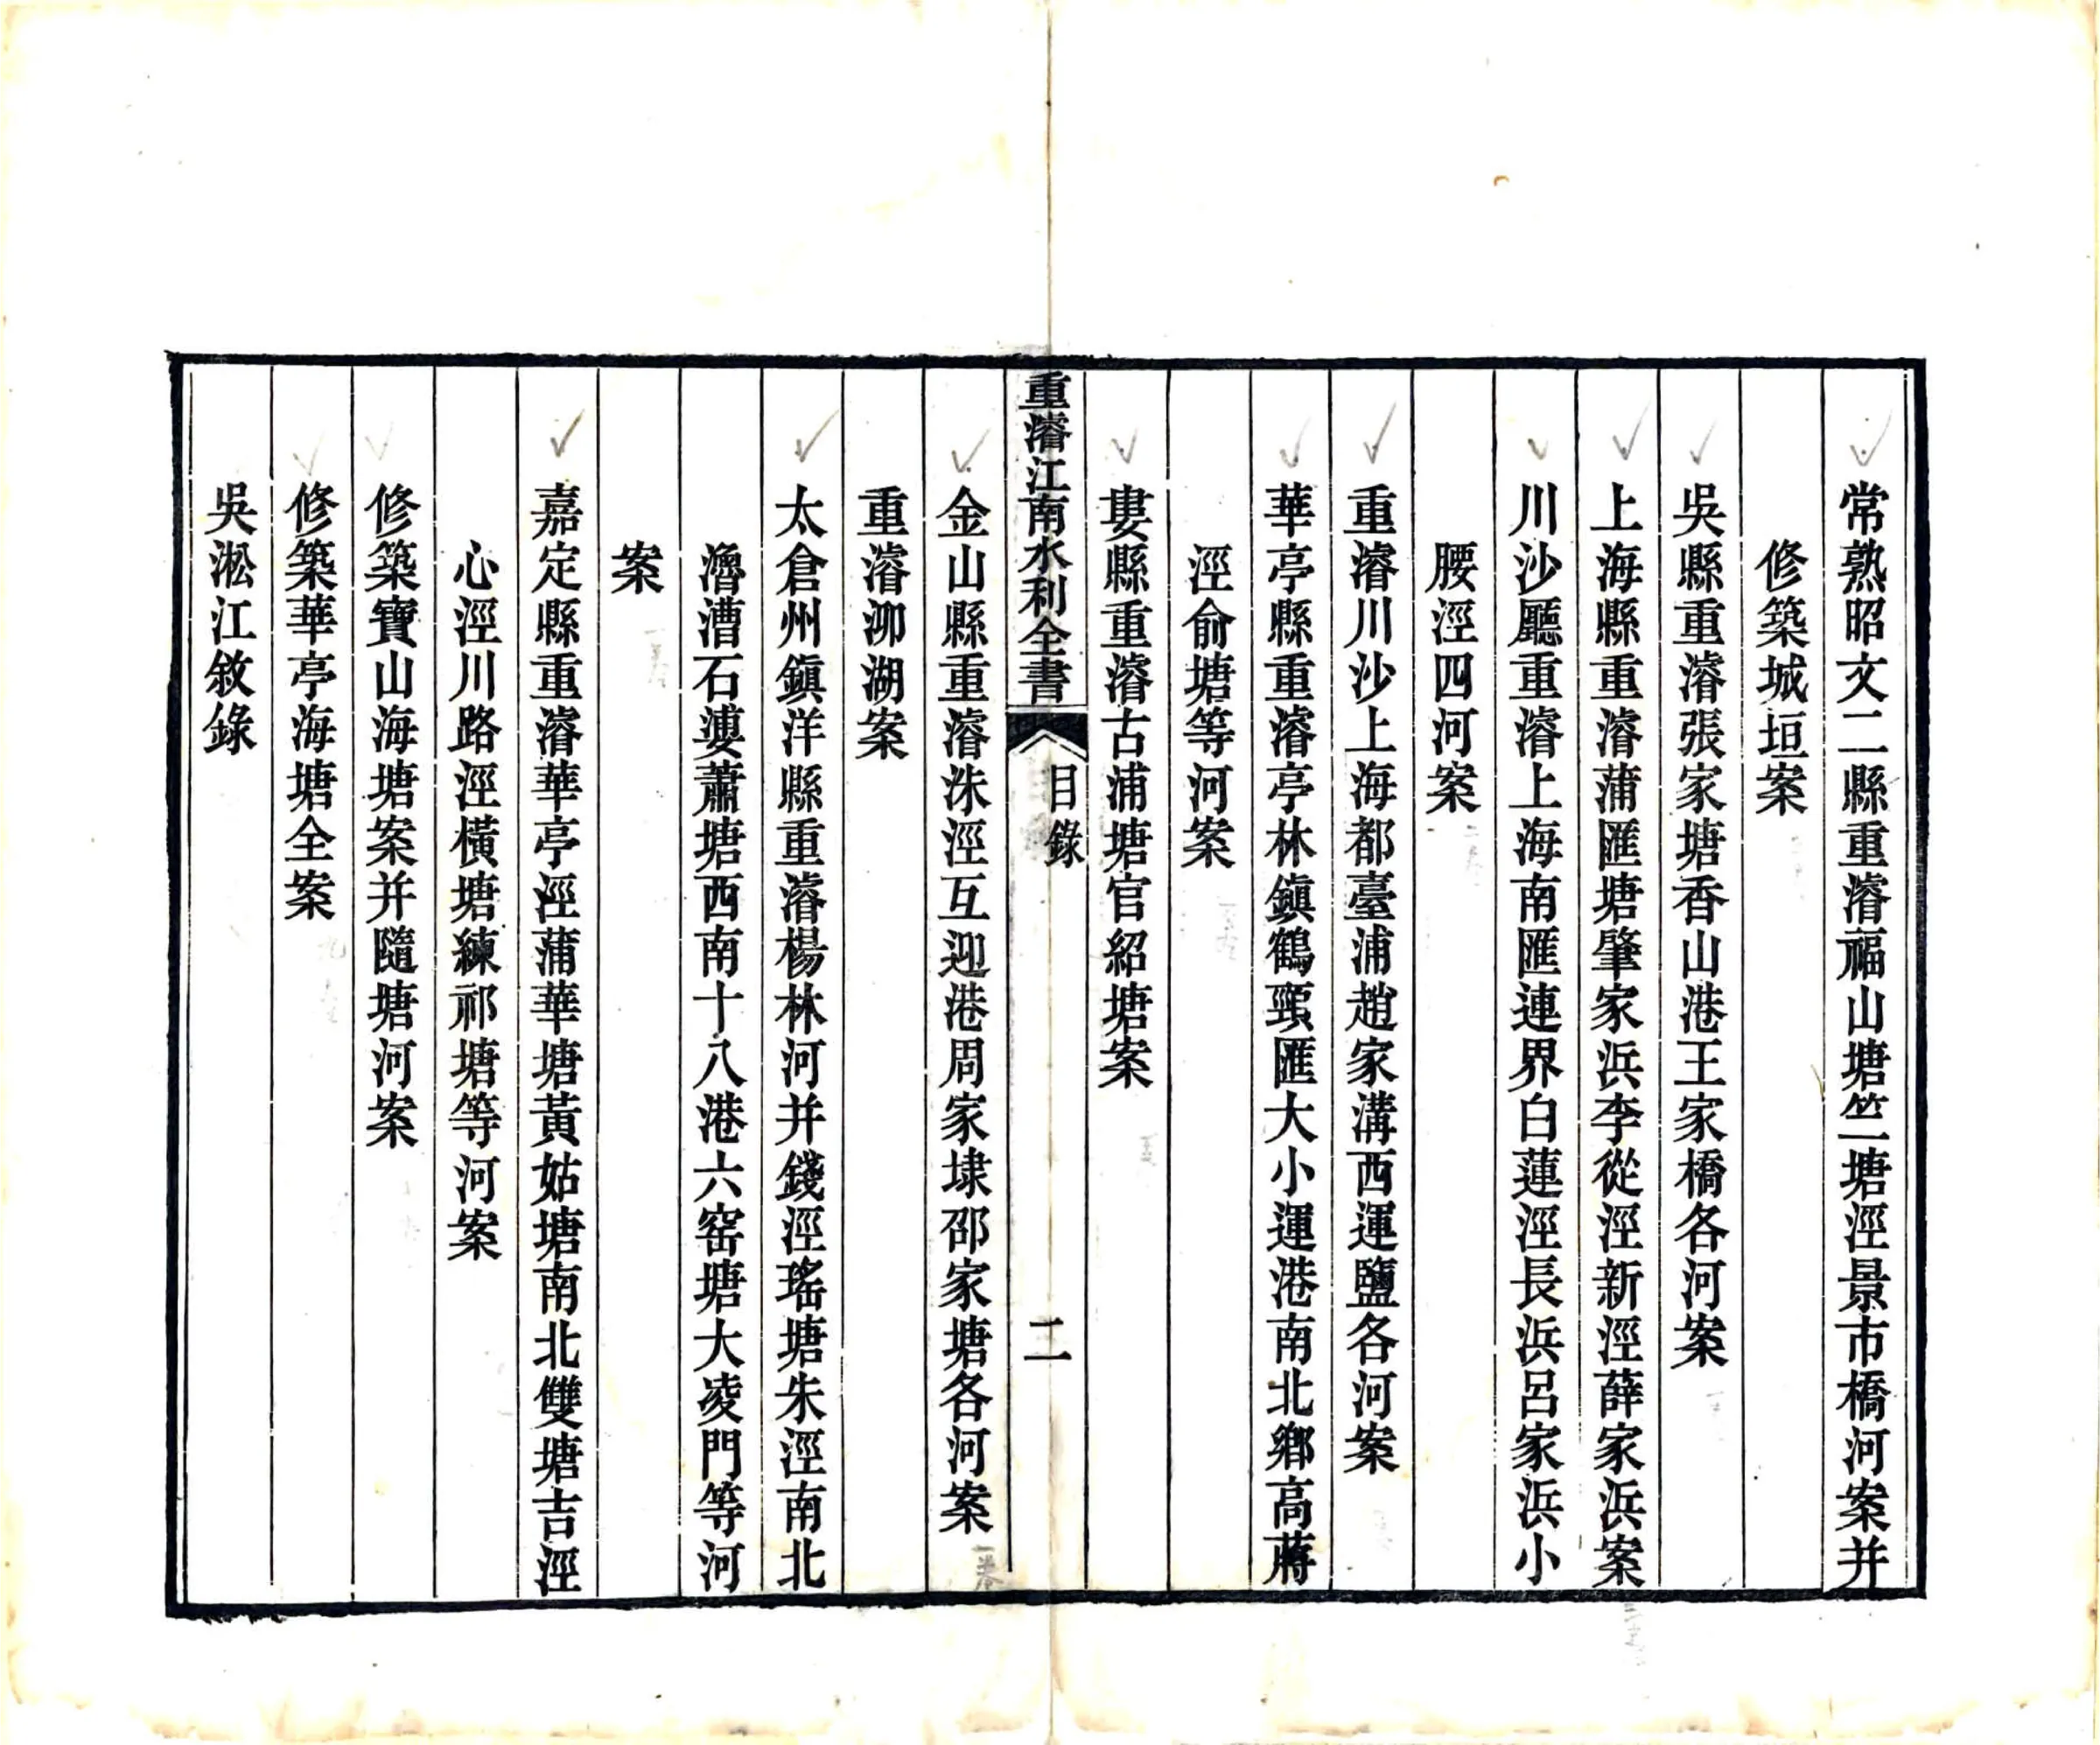 常熟昭文二縣重濬福山塘竺塘涇景市橋河案并
修築城垣案
吳縣重濬張家塘香山港王家橋各河案
上海縣重濬蒲匯塘肇家浜李從涇新涇薛家浜案
川沙廳重濬上海南匯連界白蓮涇長浜呂家浜小
腰涇四河案
重濬川沙上海都臺浦趙家溝西運鹽各河案
華亭縣重濬亭林鎮鶴頸匯大小運港南北鄉高蔣
涇俞塘等河案
婁縣重濬古浦塘官紹塘案
重濬江南水利全書
目錄
二
金山縣重濬洙涇互迎港周家埭邵家塘各河案
重濬泖湖案
太倉州鎮洋縣重濬楊林河并錢涇瑤塘朱涇南北
澛漕石婁蕭塘西南十八港六窑塘大凌門等河
案
嘉定縣重濬華亭涇蒲華塘黃姑塘南北雙塘吉涇
心涇川路涇橫塘練祁塘等河案
修築寶山海塘案并隨塘河案
修築華亭海塘全案
吳淞江敘錄